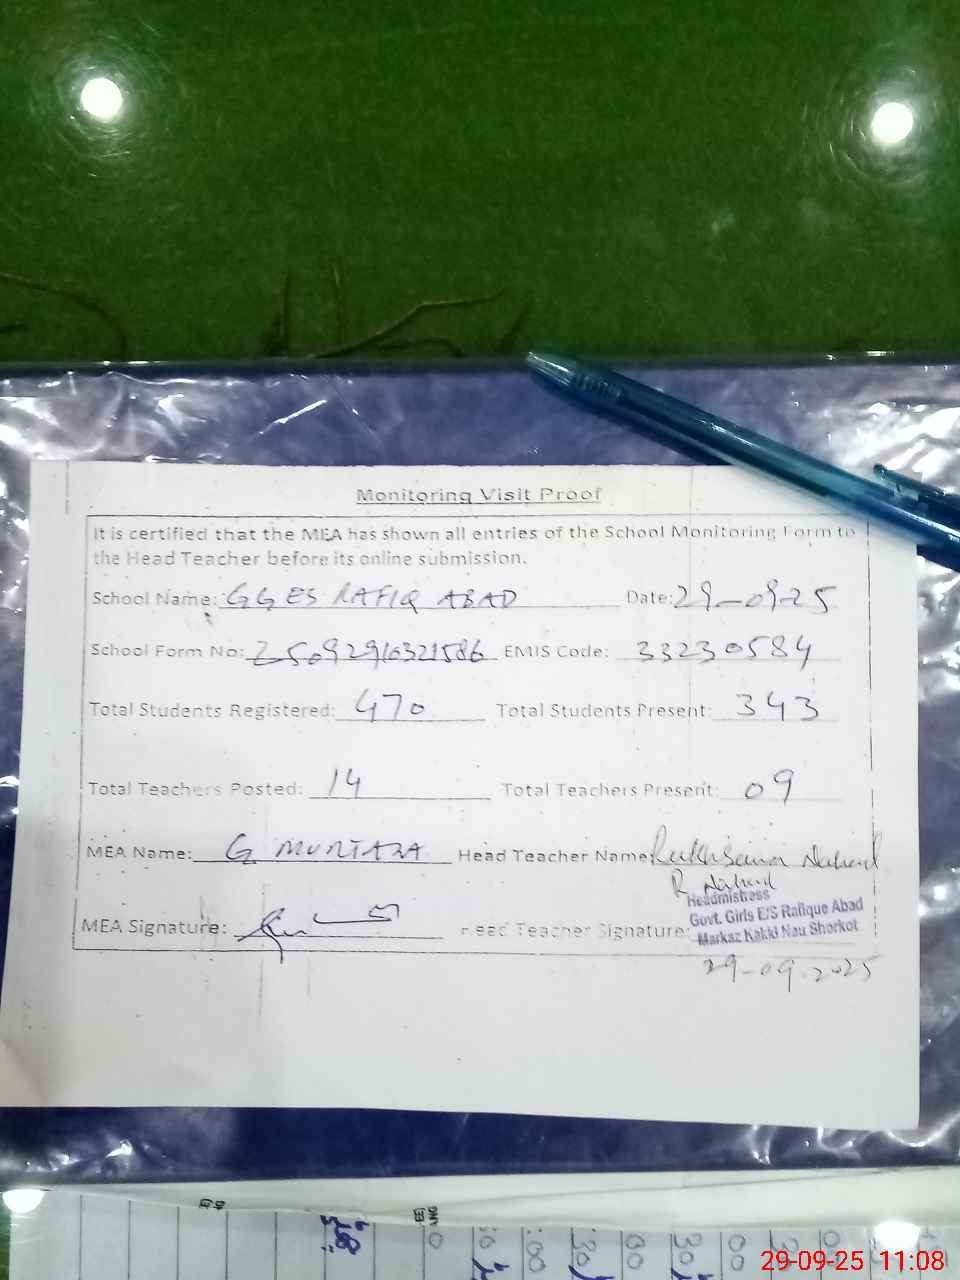 Monitoring Visit Proof
It is certified that the MEA has shown all entries of the School Monitoring Form to
the Head Teacher before its online submission.
School Name: GGES RAFIQ ABAD Date: 29-09-25
School Form No: 25092910321586 EMIS Code: 33230584
Total Students Registered: 470 Total Students Present: 343
Total Teachers Posted: 14 Total Teachers Present: 09
MEA Name: G MURTAZA Head Teacher Name: Rukhsana Naheed
R Naheed
Headmistress
Govt. Girls E/S Rafique Abad
MEA Signature: Head Teacher Signature: Markaz Kakki Nau Shorkot
29-09-2025
29-09-25 11:08